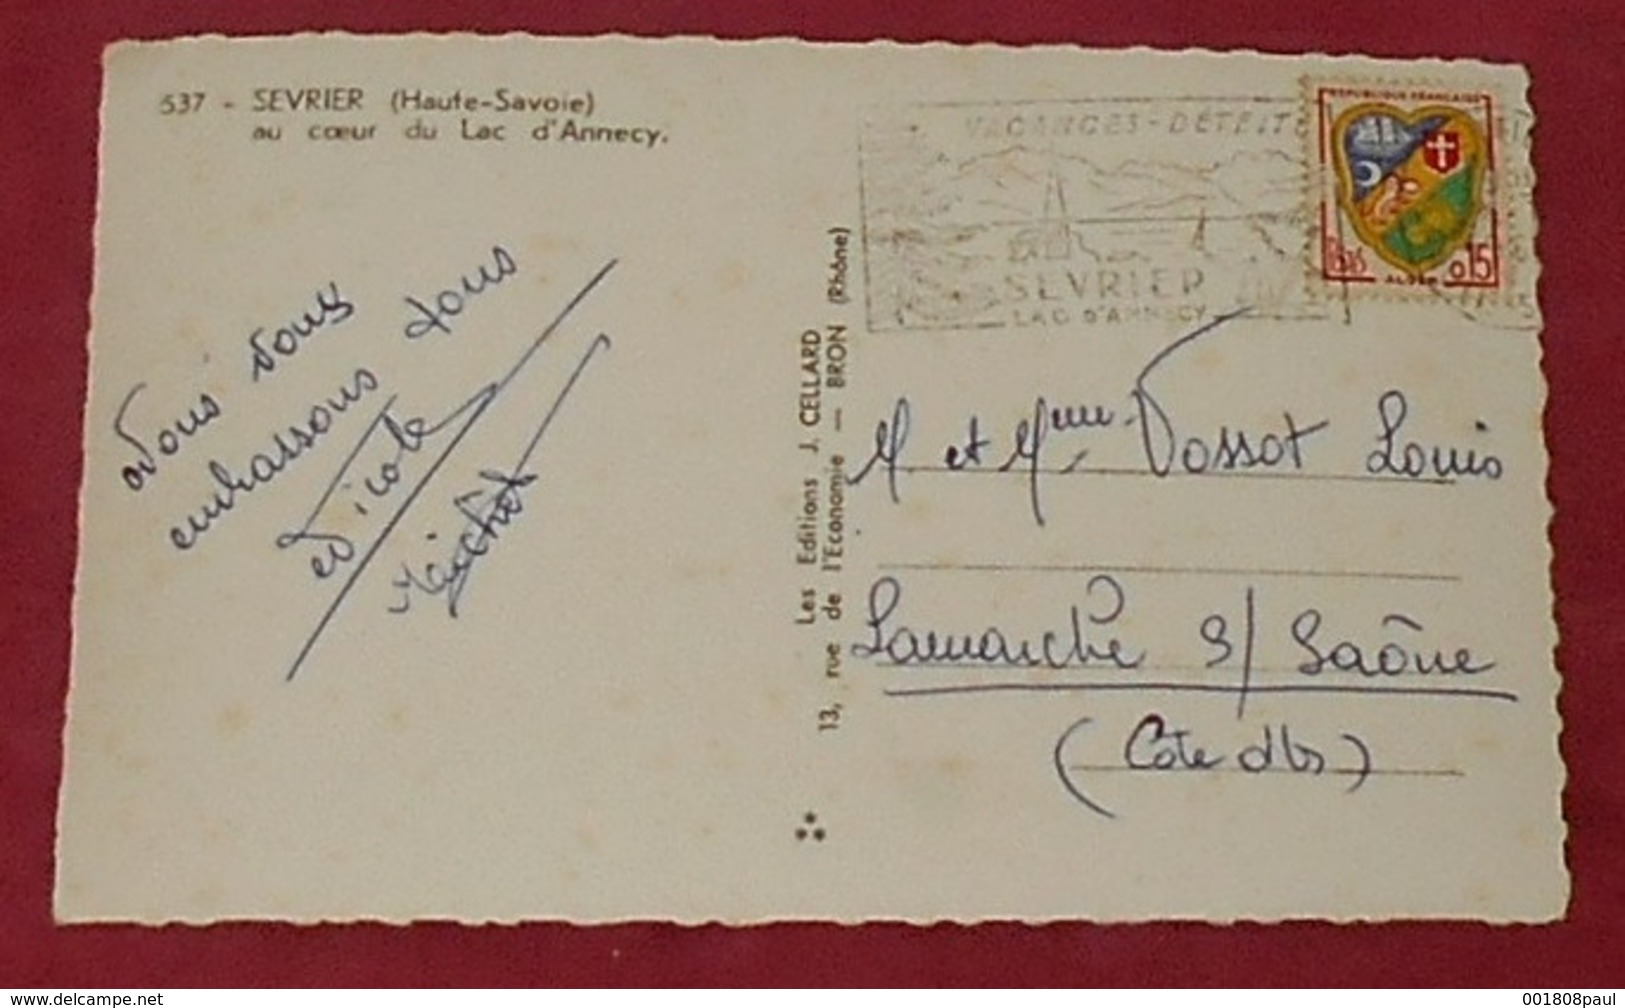 537 - SEVRIER (Haute-Savoie)
au cœur du Lac d'Annecy.
Nous vous
embrassons tous
Nicole
Michel
Les Editions J. CELLARD
13, rue de l'Economie — BRON (Rhône)
VACANCES - DÉTENTE
SEVRIER
LAC D'ANNECY
REPUBLIQUE FRANÇAISE
POSTES
0,15
ALGER
M et Mme Vossot Louis
Lamarche s/ Saône
(Côte d'or)
001808paul
www.delcampe.net